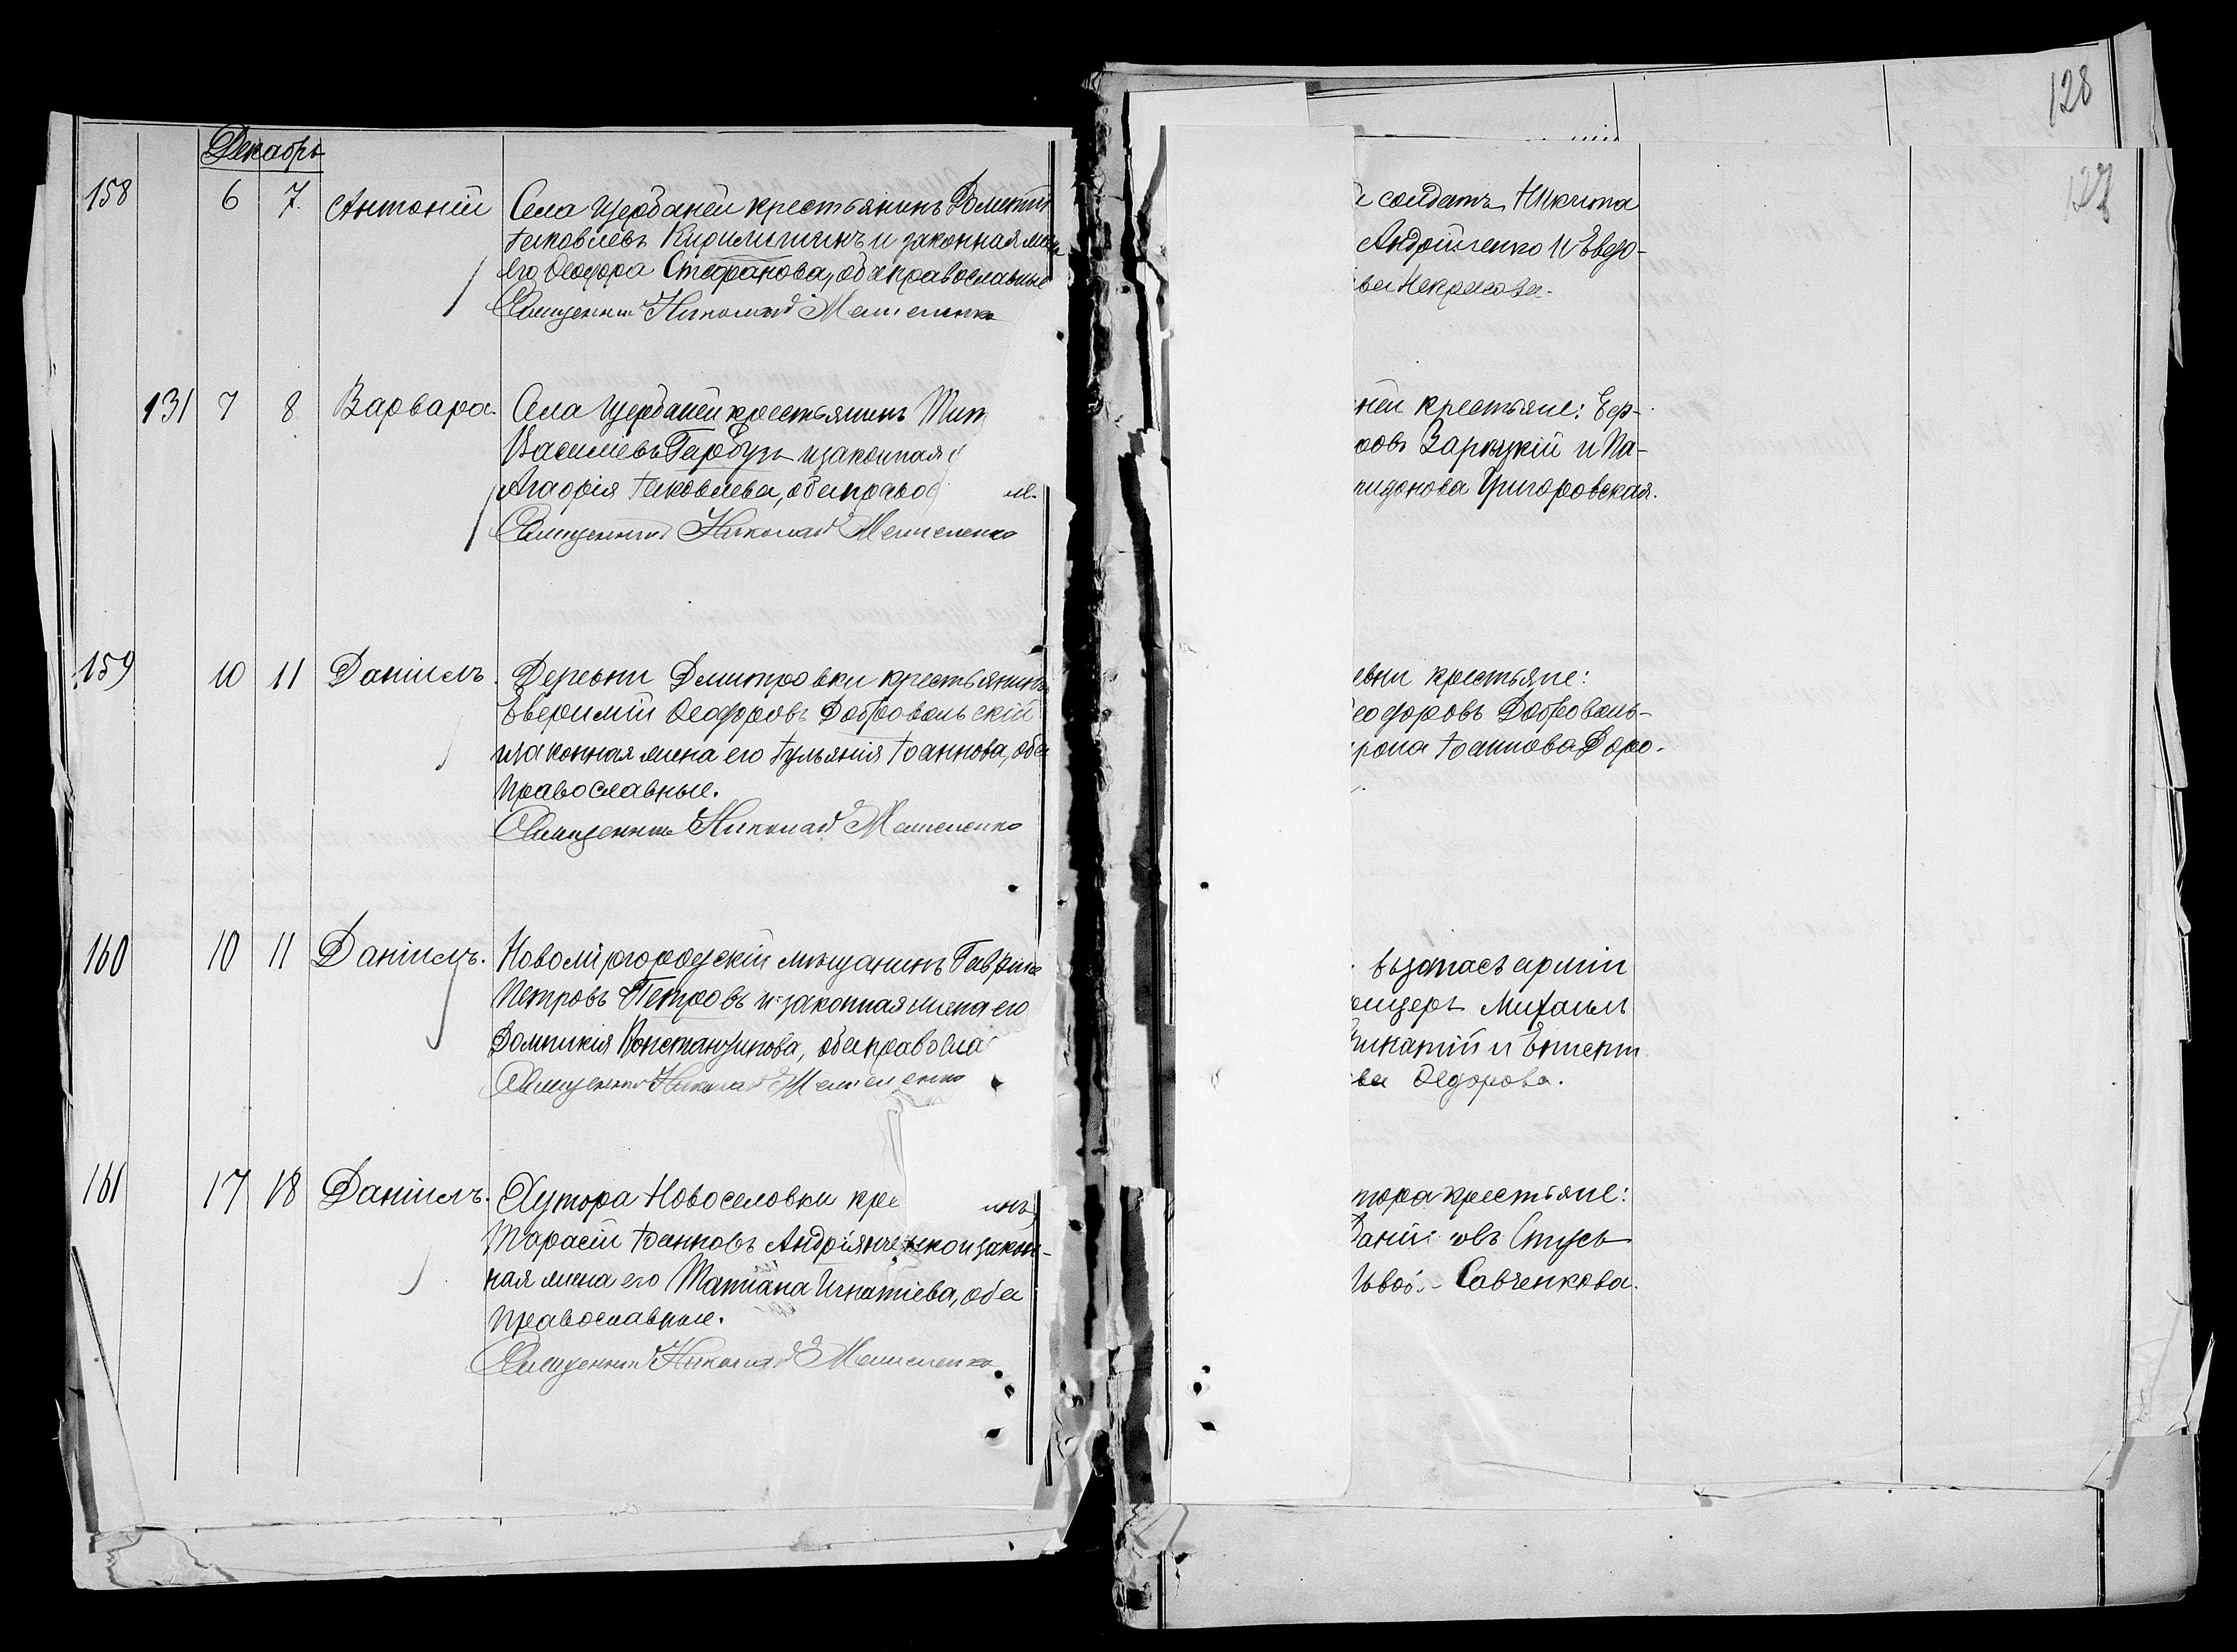 Декабрь
158 6 7. Антоній Села Щербаней крестьянинъ
Іаковлевъ и законная жена
его Ѳеодора Стефанова, оба православные
Священник Николай
131 7 8 Варвара. Села Щербаней крестьянинъ Тит
Василіевъ Гарбузъ и законная
Агафія Іаковлева, оба правос ые.
Священник Николай
159 10 11 Даніилъ. Деревни Дмитровки крестьянинъ
Евфимій Ѳеодоровъ Добровольскій
и законная жена его Іуліанія Іоаннова, оба
православные.
Священник Николай
160 10 11 Даніилъ. Новомиргородскій мѣщанинъ Гавріил
Петровъ Петровъ и законная жена его
Домникія Константинова, оба правосла
Священник Николай
161 17 18 Даніилъ. Хутора Новоселовки кре инъ
Тарасій Іоанновъ и закон-
ная жена его Татіана Игнатіева, оба
православные.
Священник Николай
128
127
солдатъ Никита
Андрійченко и Евдо-
ва Некрасова.
ней крестьяне: Гер-
ровъ Зарицкій и Па-
ридонова Григоровская.
евни крестьяне:
еодоровъ Доброволь-
рона Іоаннова Доро-
въ запасъ арміи
фицеръ Михаилъ
ва Ѳедорова.
тора крестьяне:
Даніи овъ Стусь
Савченкова.